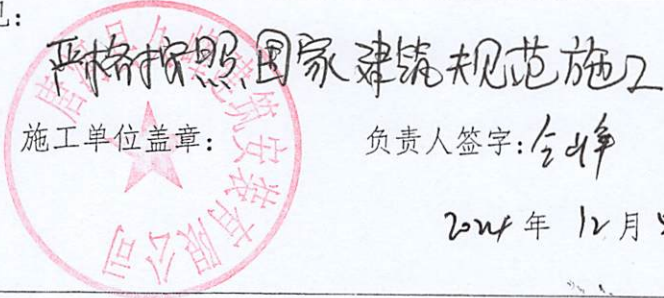 见:
严格按照国家建筑规范施工
施工单位盖章: 负责人签字:
2024年 12月
建筑安装有限公司